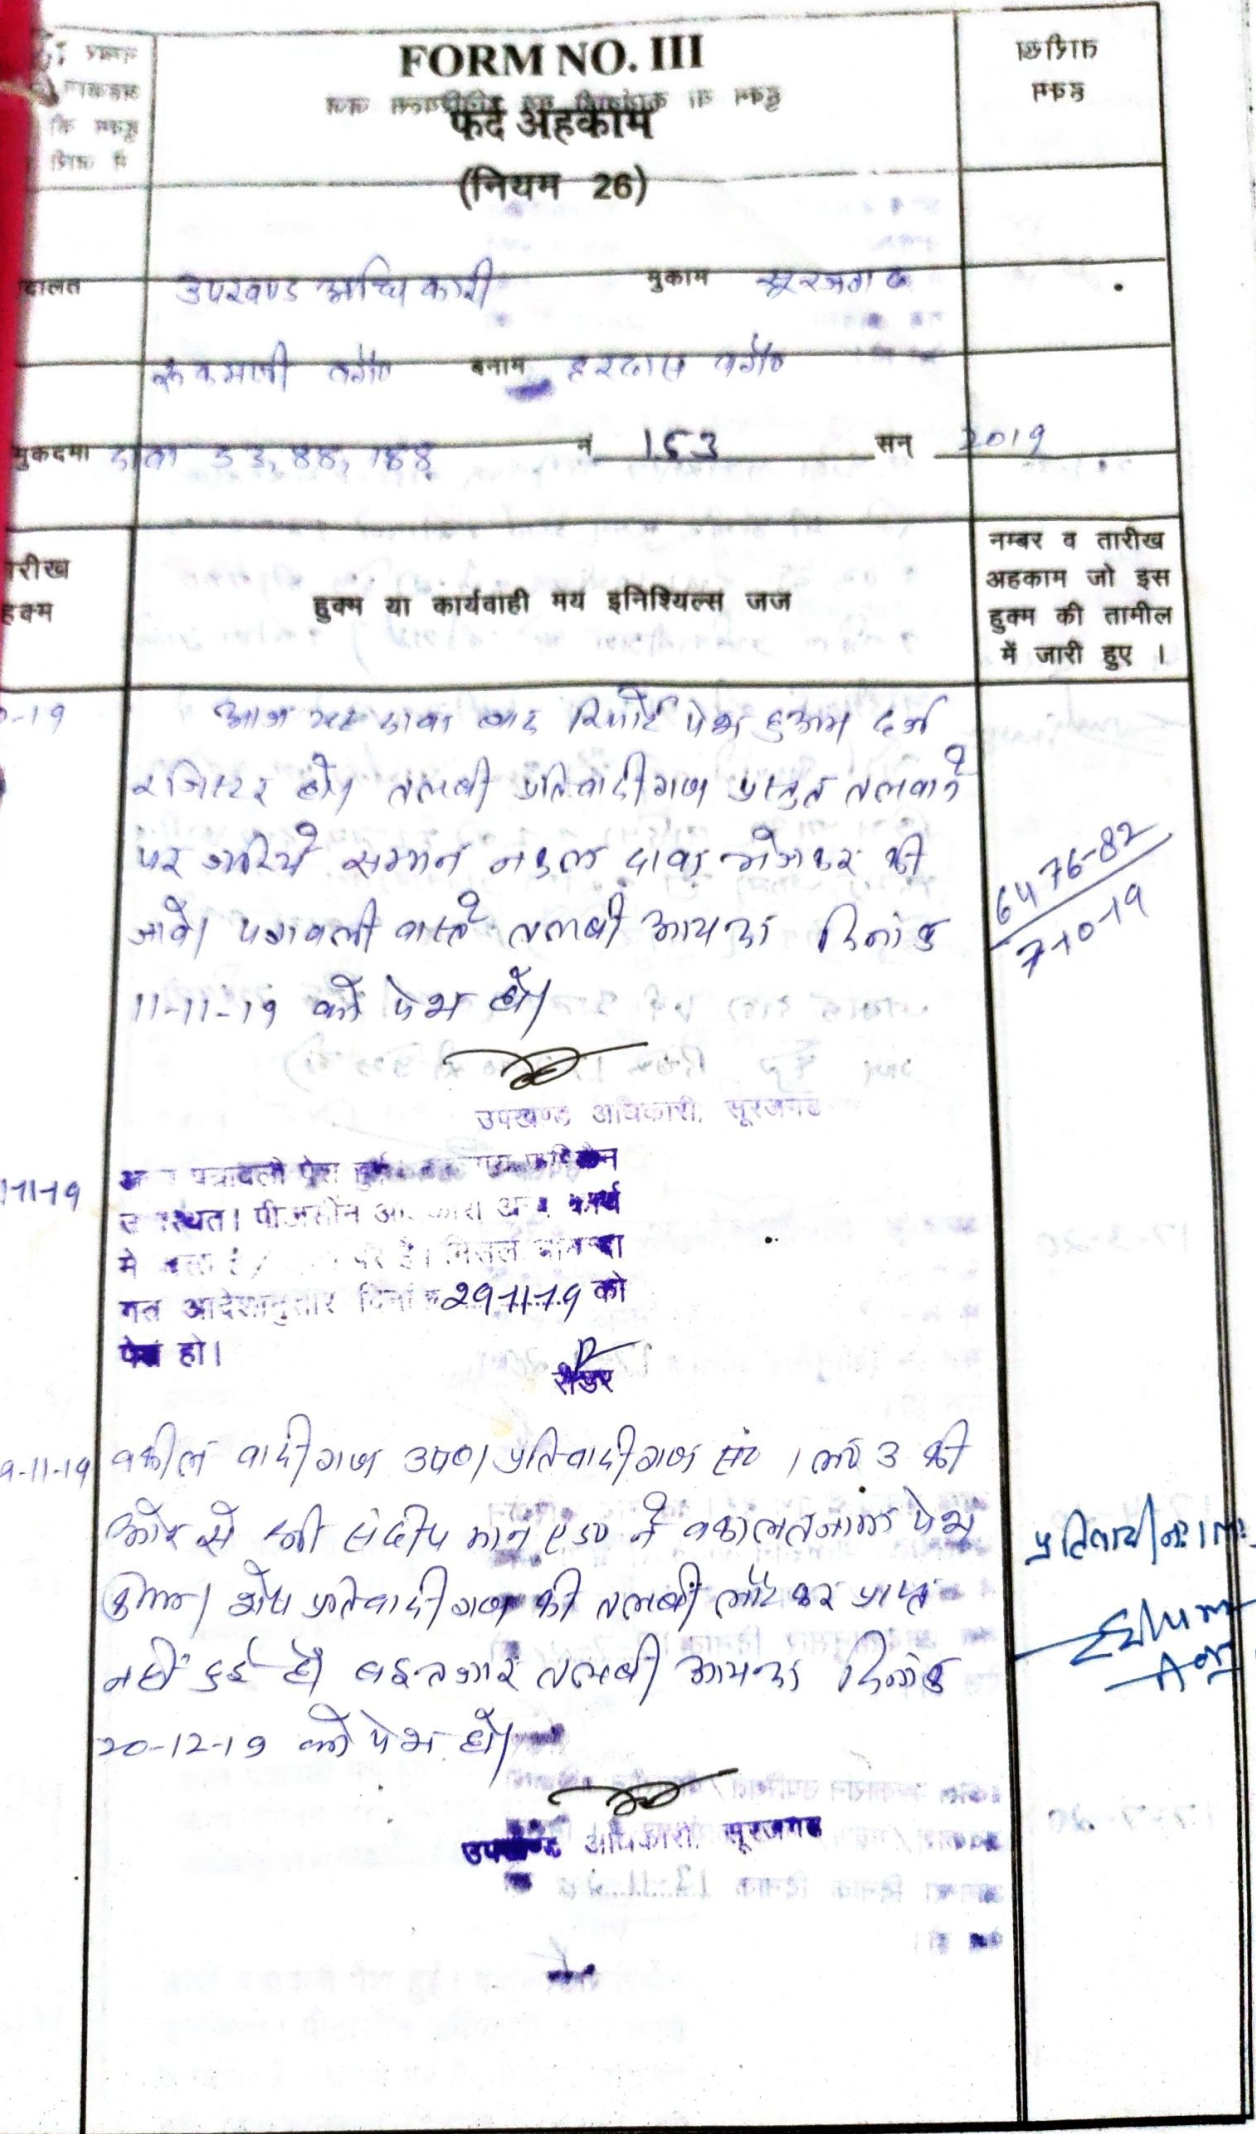 FORM NO. III
फर्द अहकाम
(नियम 26)
दालत उपखण्ड अधिकारी मुकाम सूरजगढ
रूकमाणी वगैरह बनाम हरदास वगैरह
मुकदमा दावा 53, 88, 188 नं 153 सन् 2019
तारीख
हुक्म
हुक्म या कार्यवाही मय इनिश्यिल्स जज
नम्बर व तारीख
अहकाम जो इस
हुक्म की तामील
में जारी हुए ।
-19 आज यह दावा बाद रिपोर्ट पेश हुआ। दर्ज
रजिस्टर हो। तलबी प्रतिवादीगण प्रस्तुत तलवाने
पर जरिये सम्मन नकल दावा भेजकर की
जावे। पत्रावली वास्ते तलबी आयन्दा दिनांक
11-11-19 को पेश हो।
6476-82
7-10-19
उपखण्ड अधिकारी, सूरजगढ
1-11-19 पत्रावली पेश हुई
पीठासीन अन्य कार्य
मे है। मिसल आयन्दा
गत आदेशानुसार दिनांक 29-11-19 को
पेश हो।
रीडर
9-11-19 वकील वादीगण उप०। प्रतिवादीगण सं० 1 लगा० 3 की
ओर से श्री संदीप मान एड० ने वकालतनामा पेश
किया। शेष प्रतिवादीगण की तलबी लौटकर प्राप्त
नही हुई है। इन्तजार तलबी आयन्दा दिनांक
20-12-19 को पेश हो।
उपखण्ड अधिकारी, सूरजगढ